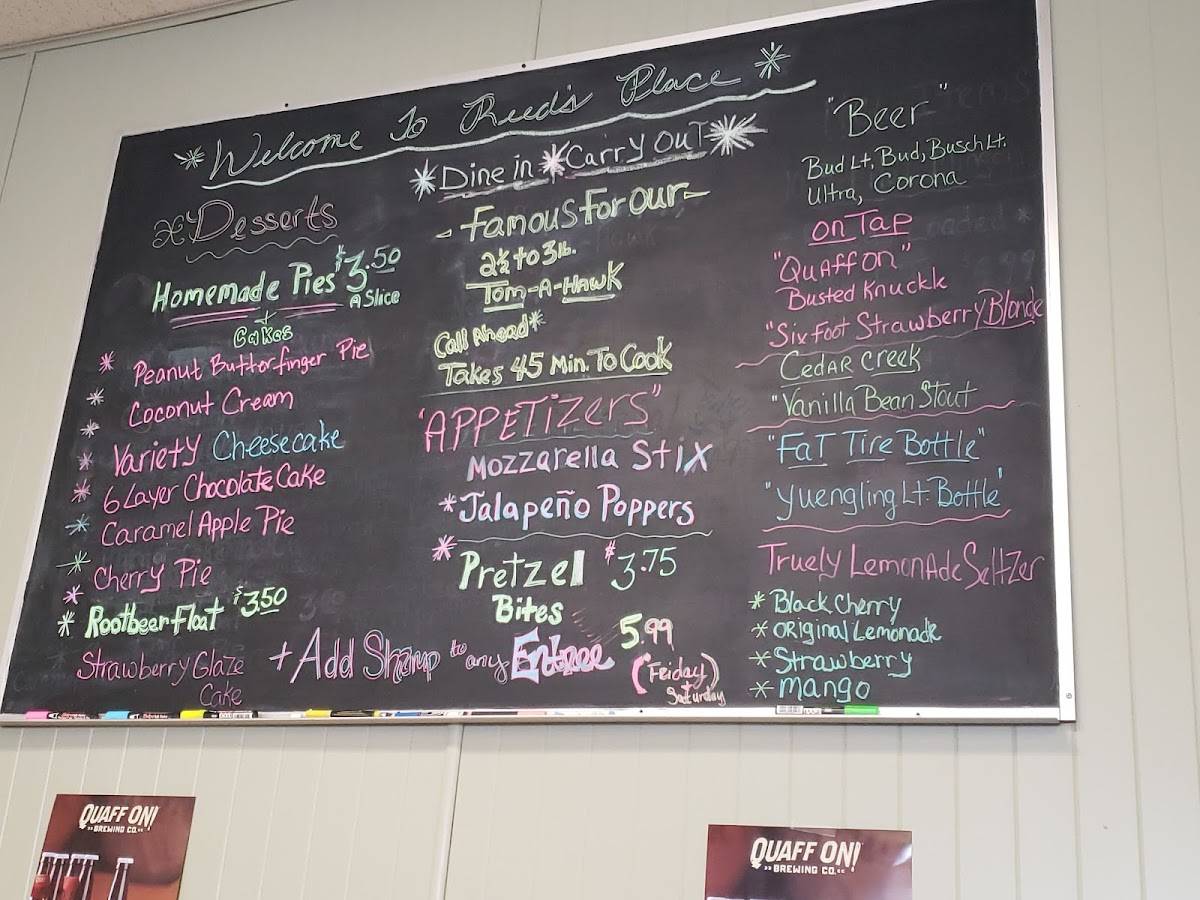 *Welcome To Reed's Place*
*Dine in*Carry Out*
Desserts
Homemade Pies $3.50
A Slice
+
Cakes
* Peanut Butterfinger Pie
* Coconut Cream
* Variety Cheesecake
* 6 Layer Chocolate Cake
* Caramel Apple Pie
* Cherry Pie
* Rootbeer Float $3.50
Strawberry Glaze
Cake
- Famous For Our -
2½ to 3 lb.
Tom-A-Hawk
Call Ahead*
Takes 45 Min. To Cook
"APPETIZERS"
Mozzarella Stix
*Jalapeño Poppers
* Pretzel $3.75
Bites
+ Add Shrimp to any Entree 5.99
(Friday)
Saturday
"Beer"
Bud Lt, Bud, Busch Lt.
Ultra, Corona
on Tap
"Quaff ON"
Busted Knuckle
"Six Foot Strawberry Blonde
Cedar Creek
"Vanilla Bean Stout
"Fat Tire Bottle"
"Yuengling Lt. Bottle"
Truely Lemonade Seltzer
* Black Cherry
* Original Lemonade
* Strawberry
* Mango
QUAFF ON!
BREWING CO.
QUAFF ON!
BREWING CO.